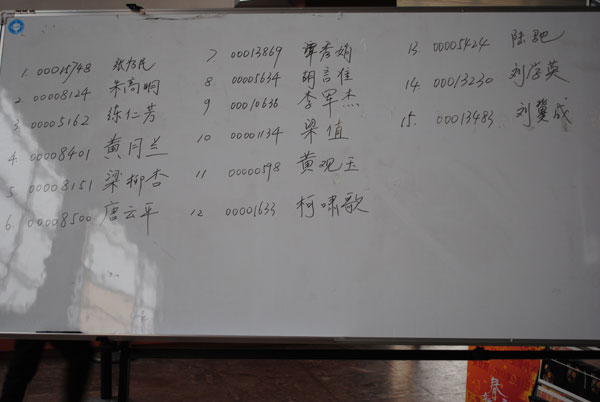 1. 00015748 张为民
2. 00008124 朱高明
3. 00005162 练仁芳
4. 00008401 黄月兰
5. 00008151 梁柳杏
6. 00008500 唐云平
7 00013869 覃彦娟
8 00005634 胡言佳
9 00010636 李军杰
10 00001134 梁值
11 00000598 黄观玉
12 00001633 柯啸歌
13 00005424 陆肥
14. 00013230 刘学英
15. 00013483 刘冀成
春